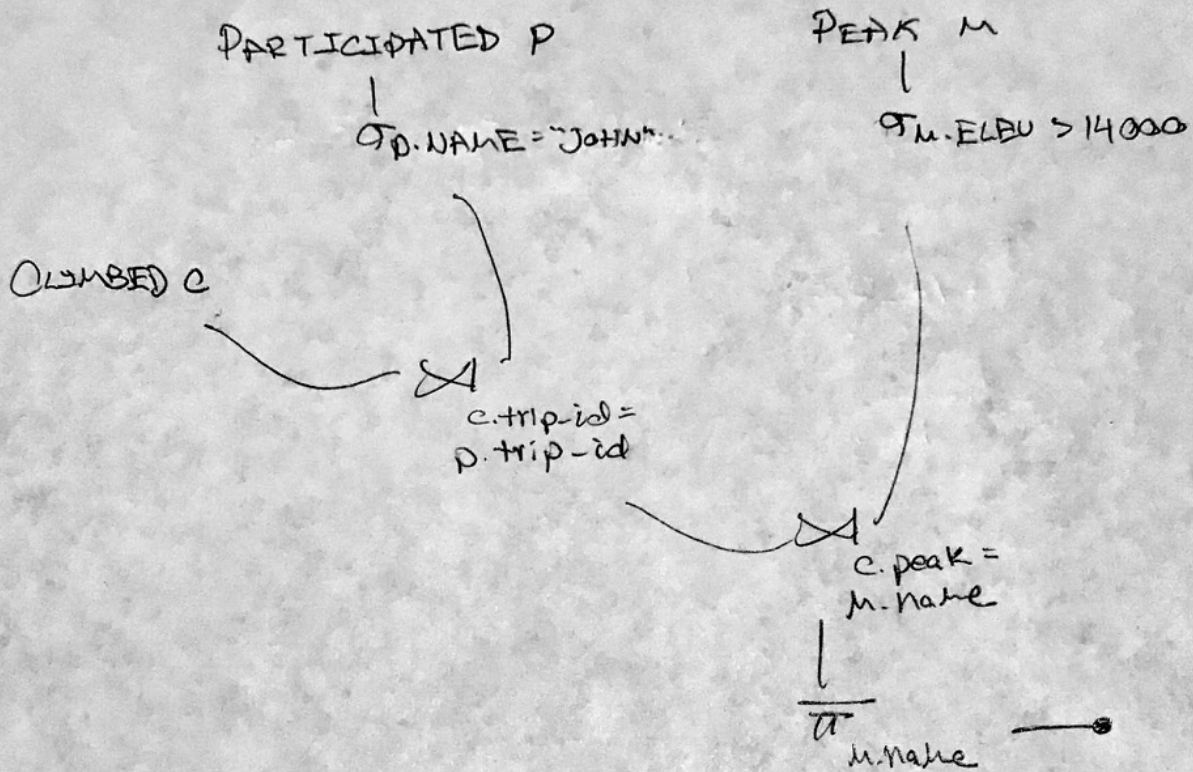 PARTICIPATED P
PEAK M
σ P.NAME = "JOHN"
σ M.ELEV > 14000
CLIMBED C
⋈
c.trip-id =
p.trip-id
⋈
c.peak =
M.name
π
M.name